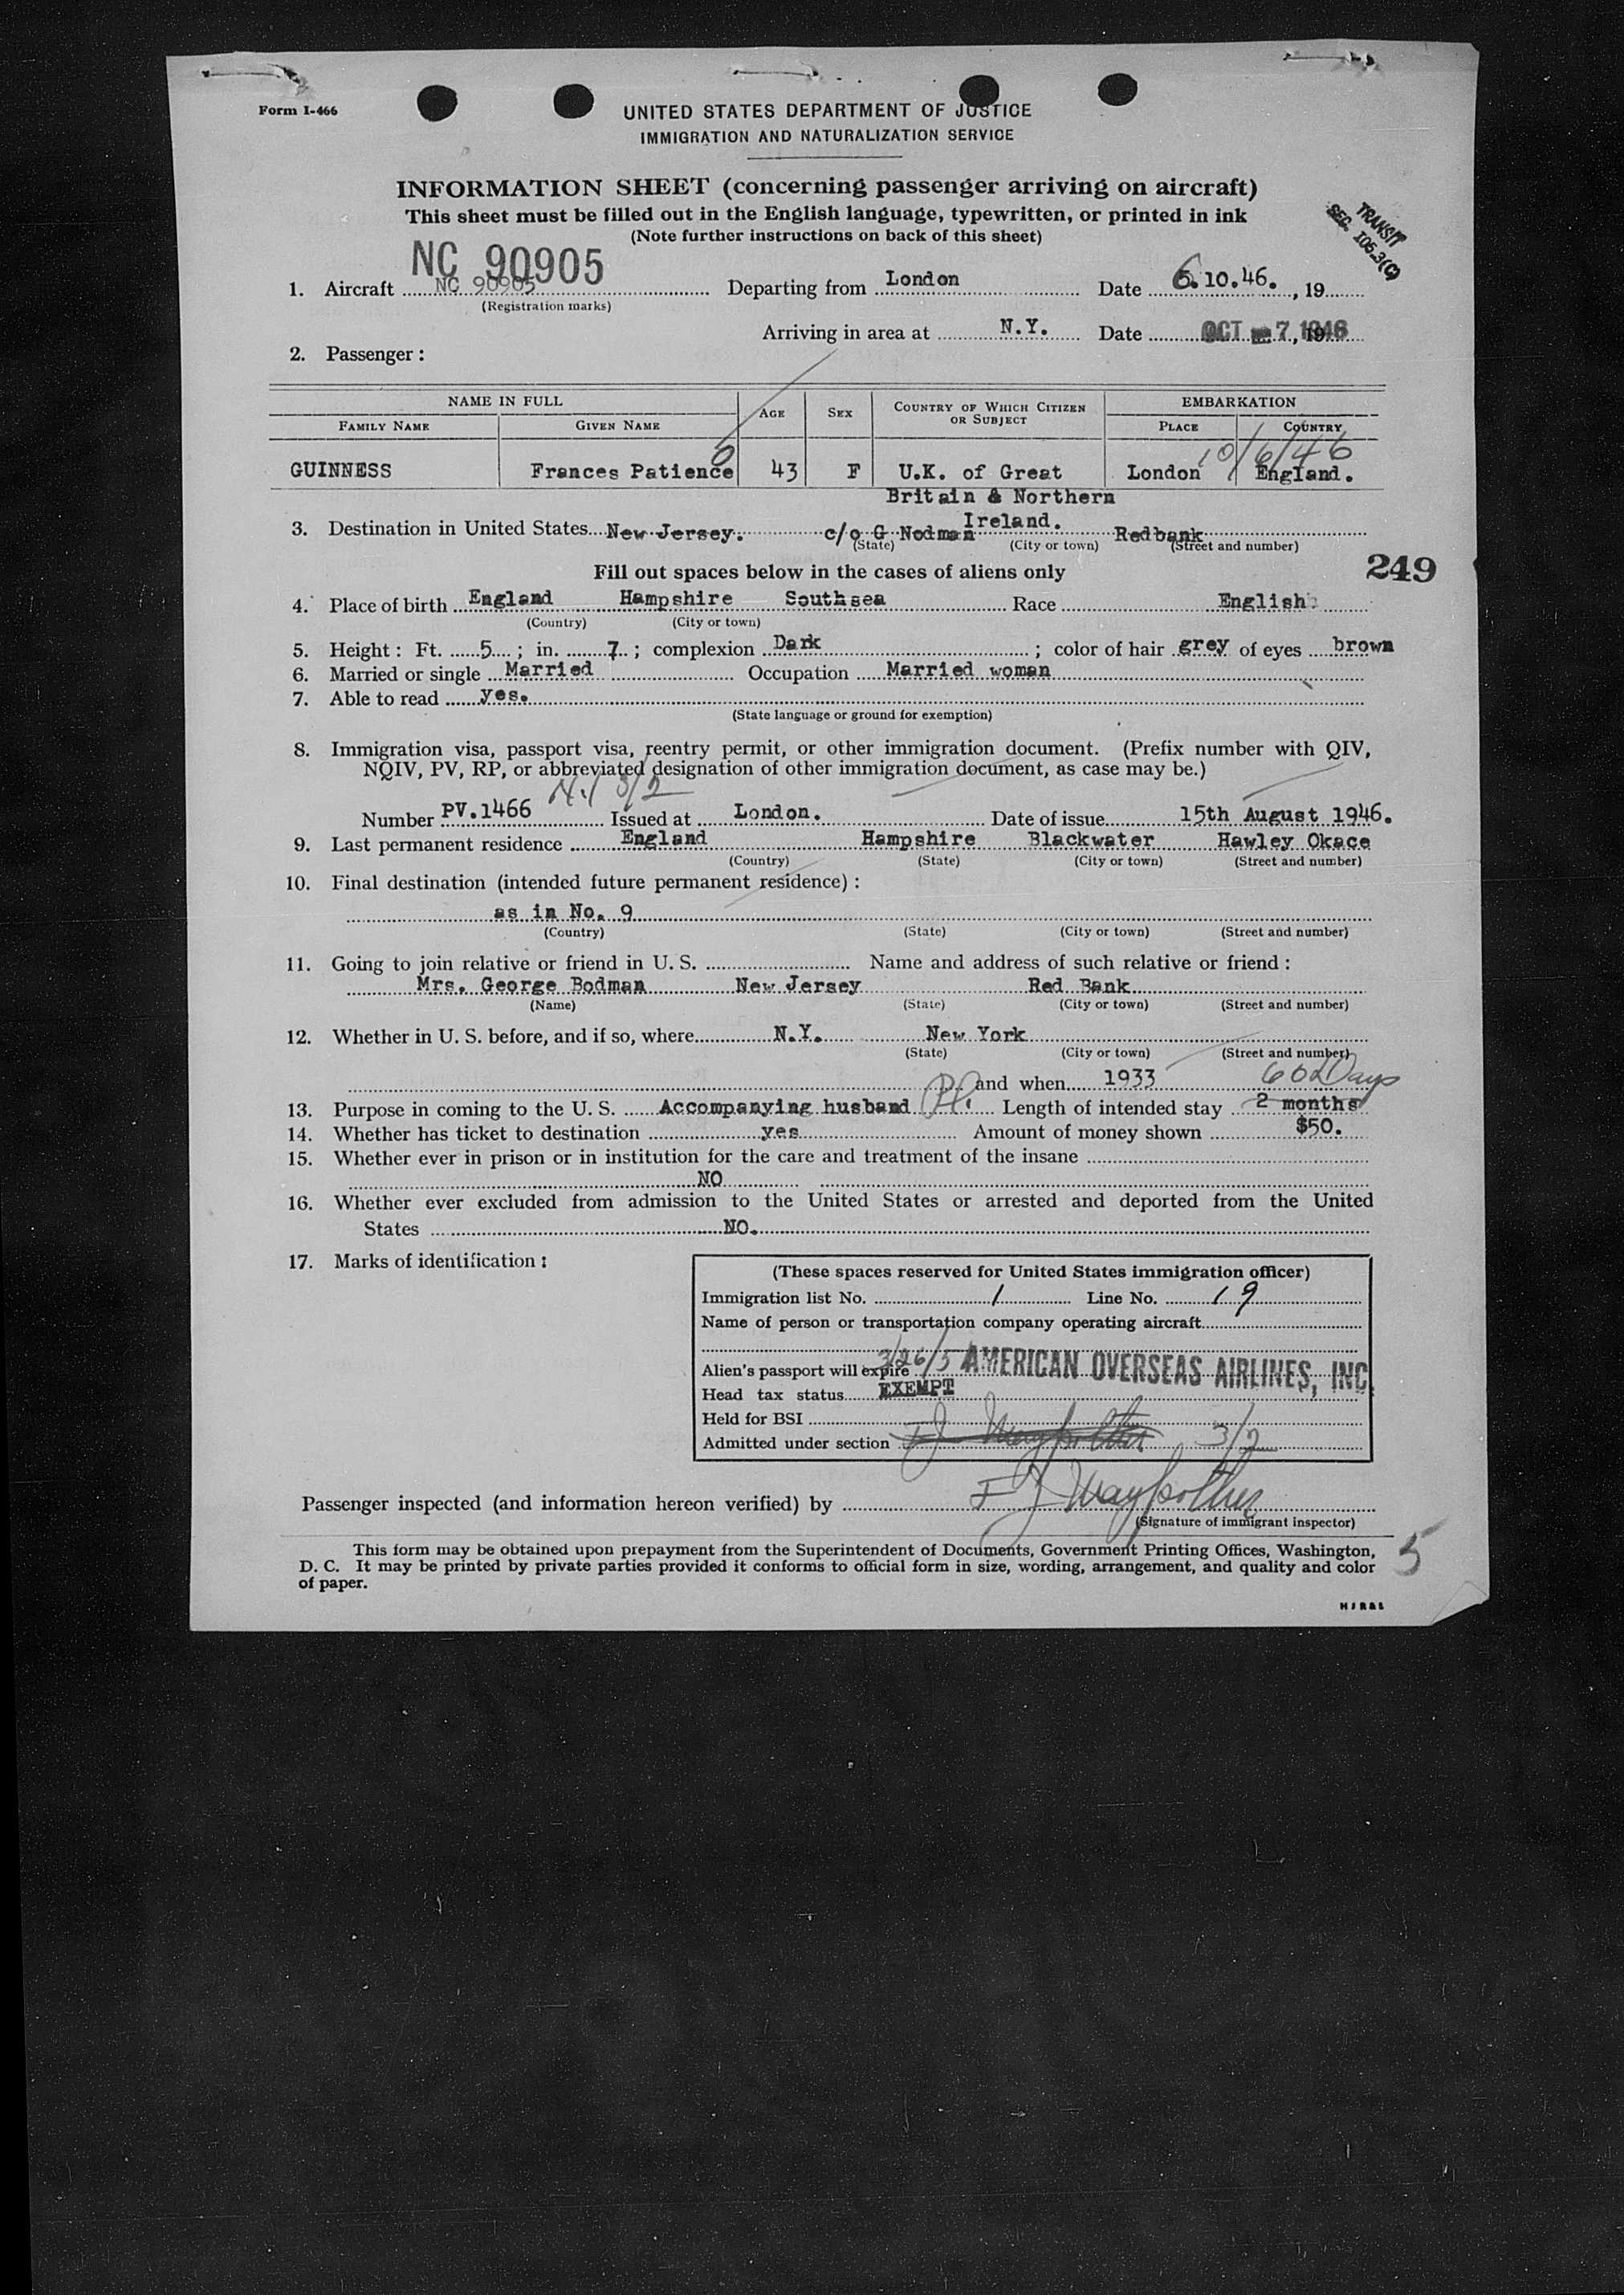 Form I-466
UNITED STATES DEPARTMENT OF JUSTICE
IMMIGRATION AND NATURALIZATION SERVICE
INFORMATION SHEET (concerning passenger arriving on aircraft)
This sheet must be filled out in the English language, typewritten, or printed in ink
(Note further instructions on back of this sheet)
TRANSIT
SEC. 105.3(C)
NC 90905
1. Aircraft NC 90905 Departing from London Date 6.10.46. , 19
(Registration marks)
Arriving in area at N.Y. Date OCT 7, 1946
2. Passenger :
NAME IN FULL AGE SEX COUNTRY OF WHICH CITIZEN OR SUBJECT EMBARKATION
FAMILY NAME GIVEN NAME PLACE COUNTRY
10/6/46
GUINNESS Frances Patience 43 F U.K. of Great London England.
Britain & Northern
Ireland.
3. Destination in United States New Jersey. c/o G Nodman Redbank
(State) (City or town) (Street and number)
249
Fill out spaces below in the cases of aliens only
4. Place of birth England Hampshire Southsea Race English
(Country) (City or town)
5. Height : Ft. 5 ; in. 7 ; complexion Dark ; color of hair grey of eyes brown
6. Married or single Married Occupation Married woman
7. Able to read yes.
(State language or ground for exemption)
8. Immigration visa, passport visa, reentry permit, or other immigration document. (Prefix number with QIV,
NQIV, PV, RP, or abbreviated designation of other immigration document, as case may be.)
3/2
Number PV.1466 Issued at London. Date of issue 15th August 1946.
9. Last permanent residence England Hampshire Blackwater Hawley Okace
(Country) (State) (City or town) (Street and number)
10. Final destination (intended future permanent residence) :
as in No. 9
(Country) (State) (City or town) (Street and number)
11. Going to join relative or friend in U. S. Name and address of such relative or friend :
Mrs. George Bodman New Jersey Red Bank
(Name) (State) (City or town) (Street and number)
12. Whether in U. S. before, and if so, where N.Y. New York
(State) (City or town) (Street and number)
and when 1933 60 Days
13. Purpose in coming to the U. S. Accompanying husband Pl. Length of intended stay 2 months
14. Whether has ticket to destination yes Amount of money shown $50.
15. Whether ever in prison or in institution for the care and treatment of the insane
NO
16. Whether ever excluded from admission to the United States or arrested and deported from the United
States NO.
17. Marks of identification :
(These spaces reserved for United States immigration officer)
Immigration list No. 1 Line No. 19
Name of person or transportation company operating aircraft
AMERICAN OVERSEAS AIRLINES, INC.
Alien's passport will expire 3/26/5
Head tax status EXEMPT
Held for BSI
Admitted under section 3/2
Passenger inspected (and information hereon verified) by
(Signature of immigrant inspector)
This form may be obtained upon prepayment from the Superintendent of Documents, Government Printing Offices, Washington,
D. C. It may be printed by private parties provided it conforms to official form in size, wording, arrangement, and quality and color
of paper.
5